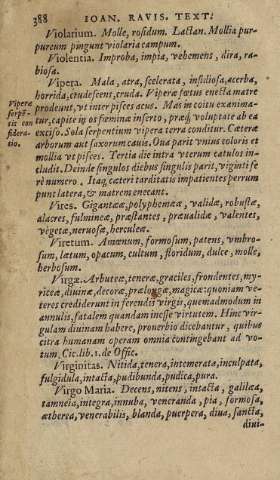 388 IOAN. RAVIS. TEXT.
Violarium. Molle, rosidum. Lactan. Mollia pur-
pureum pingunt violaria campum.
Violentia. Improba, impia, vehemens, dira, ra-
biosa.
Vipera. Mala, atra, scelerata, insidiosa, acerba,
horrida, crudescens, cruda. Viperæ fœtus enecta matre
Vipera
serpē-
tis con
sidera-
tio.
prodeunt, vt interpisces acus. Mas in coitu exanima-
tur, capite in os fœminæ inserto, præq; voluptate ab ea
exciso. Sola serpentium vipera terra conditur. Cæteræ
arborum aut saxorum cauis. Oua parit vnius coloris et
mollia vt pisces. Tertia die intra vterum catulos in-
cludit. Deinde singulos diebus singulis parit, viginti fe
rè numero. Itaq; cæteri tarditatis impatientes perrum
punt latera, & matrem enecant.
Vires. Giganteæ, polyphemeæ, validæ, robustæ,
alacres, fulmineæ, præstantes, præualidæ, valentes,
vegetæ, neruosæ, herculeæ.
Viretum. Amœnum, formosum, patens, vmbro-
sum, lætum, opacum, cultum, floridum, dulce, molle,
herbosum.
Virgæ. Arbuteæ, teneræ, graciles, frondentes, my-
riceæ, diuinæ, decoræ, prælongæ, magicæ: quoniam ve-
teres crediderunt in ferendis virgis, quemadmodum in
annulis, fatalem quandam inesse virtutem. Hinc vir-
gulam diuinam habere, prouerbio dicebantur, quibus
citra humanam operam omnia contingebant ad vo-
tum, Cic. lib. 1. de Offic.
Virginitas. Nitida, tenera, intemerata, inculpata,
fulgidula, intacta, pudibunda, pudica, pura.
Virgo Maria. Decens, nitens, intacta, galilæa,
iamneia, integra, innuba, veneranda, pia, formosa,
ætherea, venerabilis, blanda, puerpera, diua, sancta,
diui-